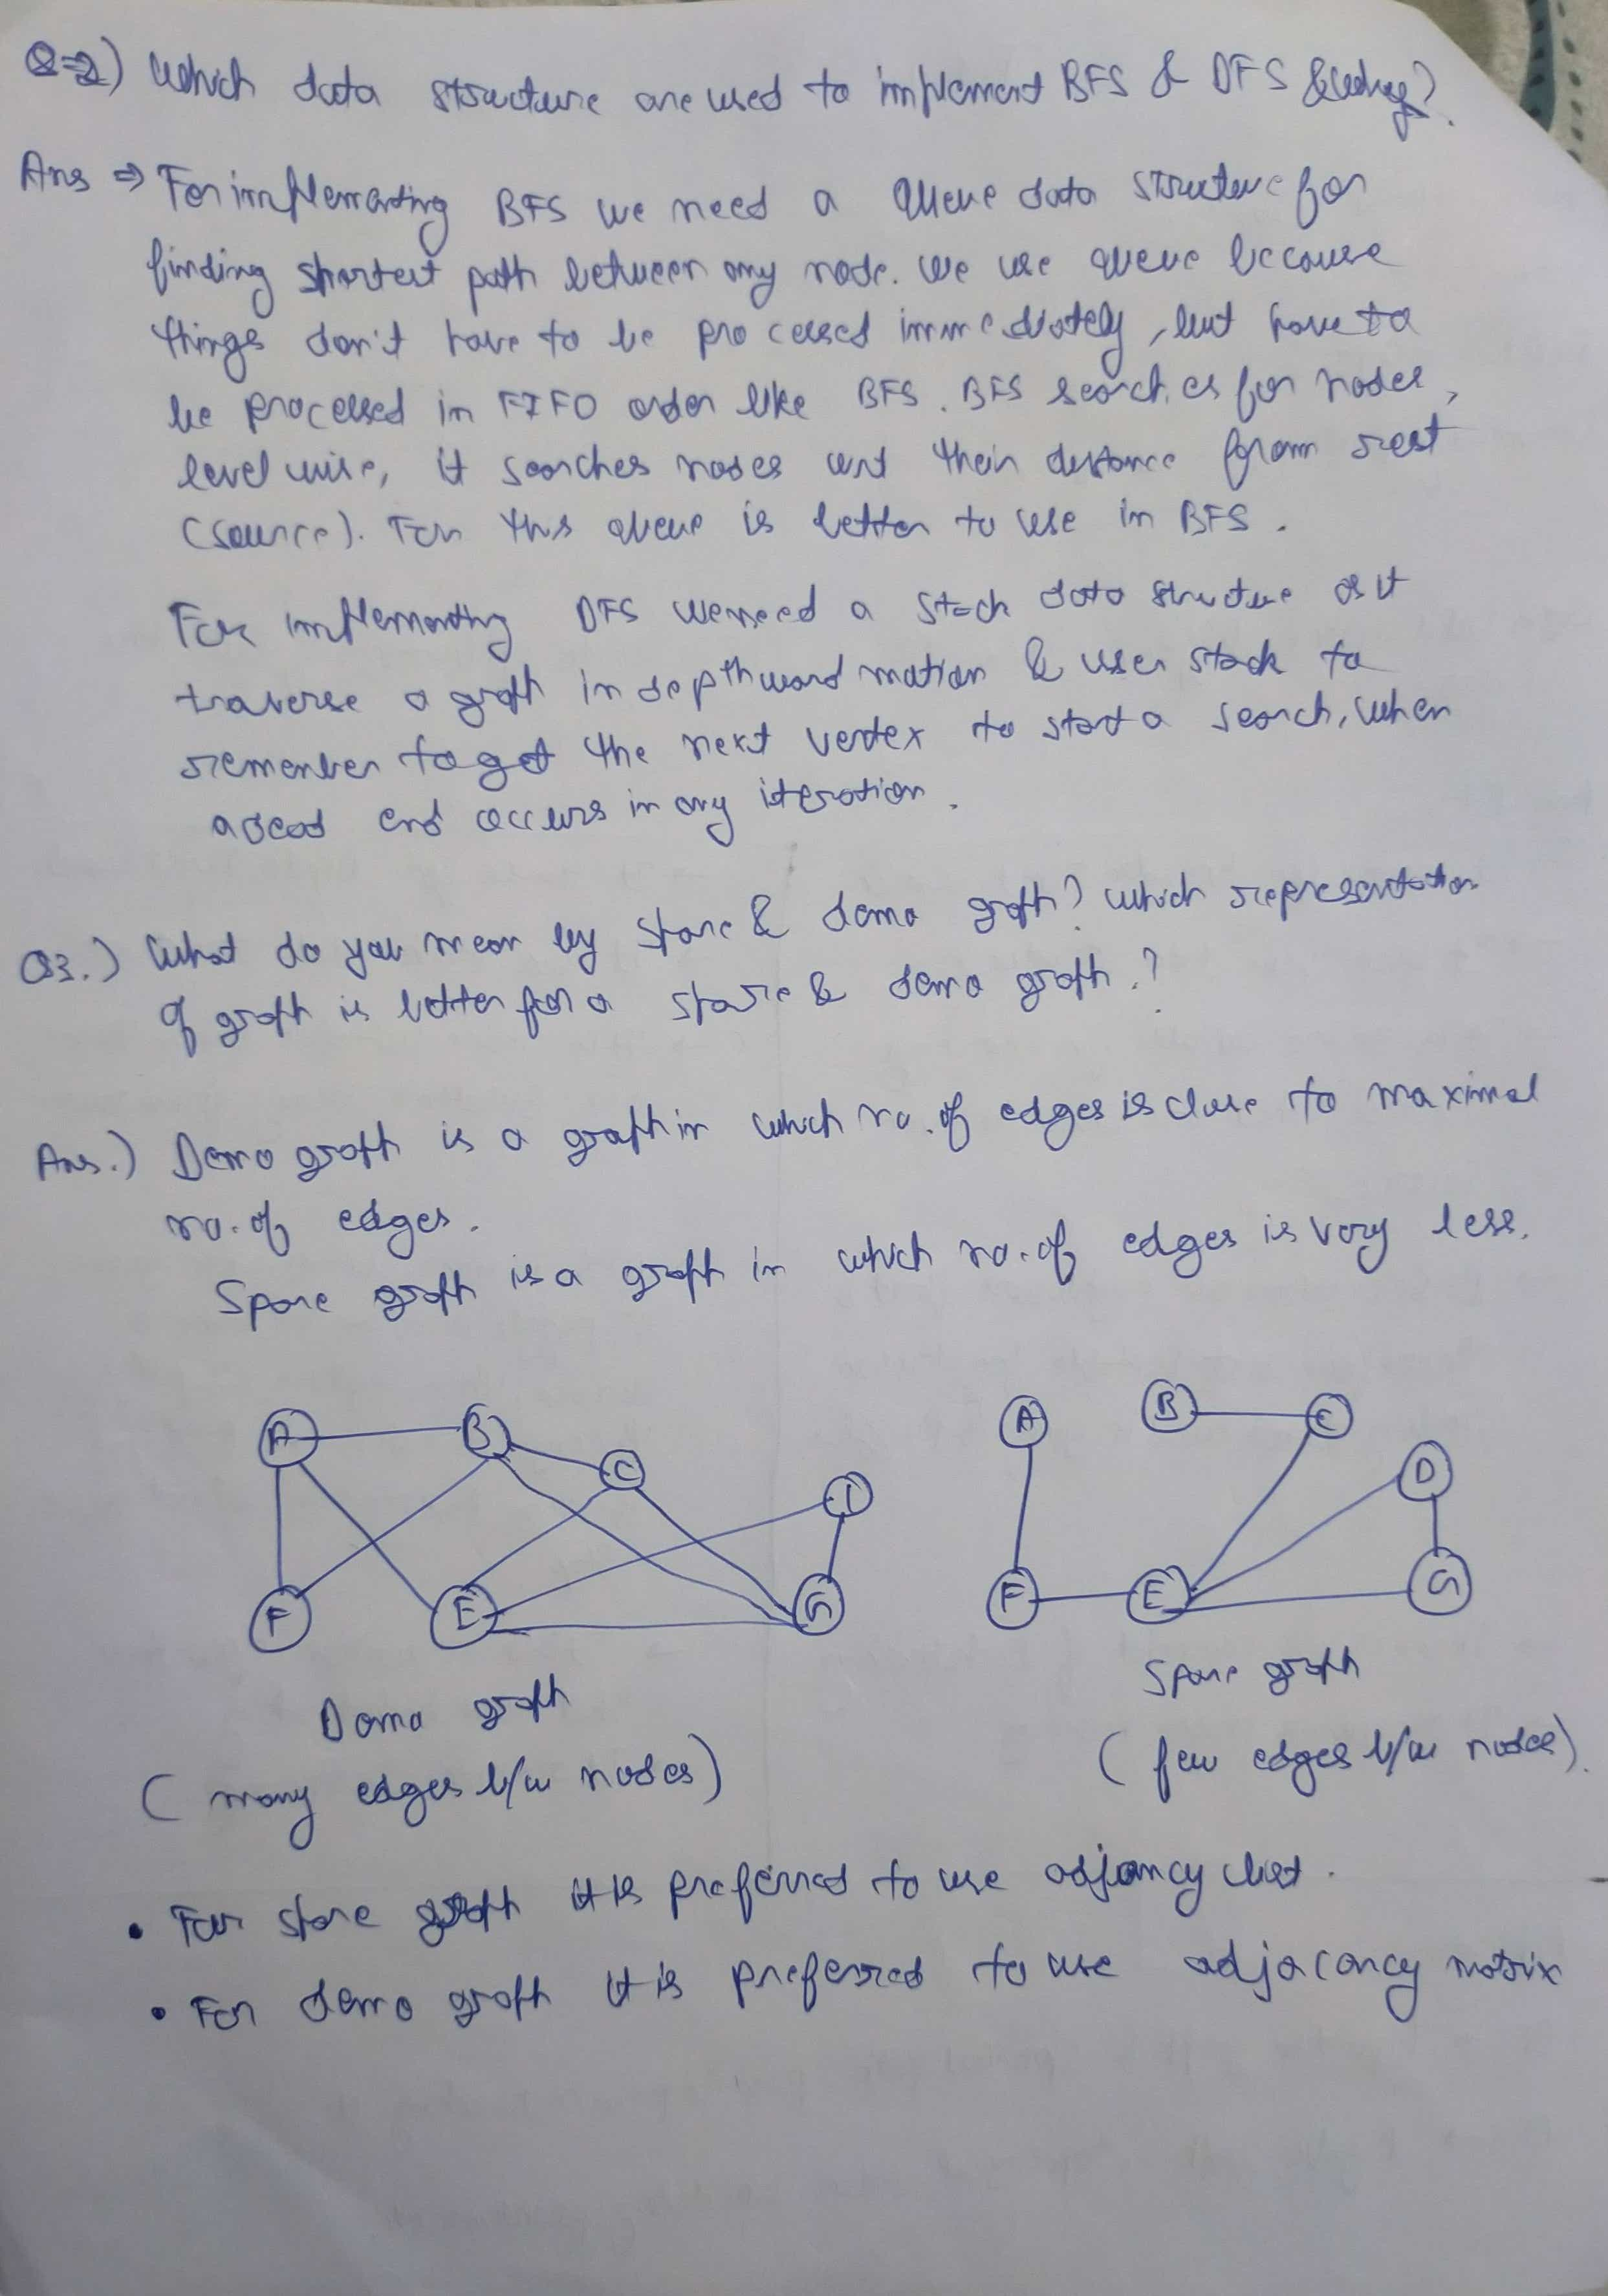 Q=2) Which data structure are used to implement BFS & DFS & why?
Ans ⇒ For implementing BFS we need a Queue data structure for
finding shortest path between any node. We use queue because
things don't have to be processed immediately, but have to
be processed in FIFO order like BFS. BFS searches for nodes,
level wise, it searches nodes wrt their distance from root
(source). For this queue is better to use in BFS.
For implementing DFS we need a stack data structure as it
traverse a graph in depthward motion & uses stack to
remember to get the next vertex to start a search, when
a dead end occurs in any iteration.
Q3.) What do you mean by sparse & dense graph? Which representation
of graph is better for a sparse & dense graph.?
Ans.) Dense graph is a graph in which no. of edges is close to maximal
no. of edges.
Sparse graph is a graph in which no. of edges is very less.
A B C D
F E G
Dense graph
(many edges b/w nodes)
A B C D
F E G
Sparse graph
(few edges b/w nodes).
• For sparse graph it is preferred to use adjancy list.
• For dense graph it is preferred to use adjacancy matrix